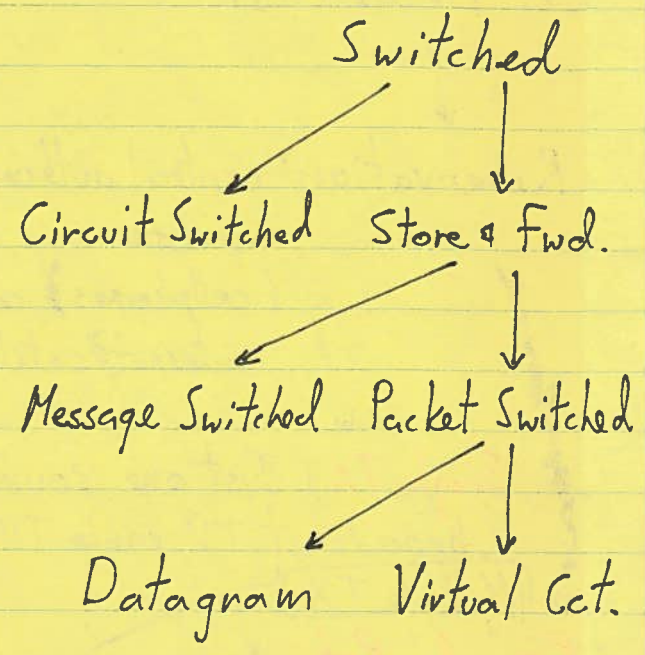 Switched
Circuit Switched Store & Fwd.
Message Switched Packet Switched
Datagram Virtual Cct.